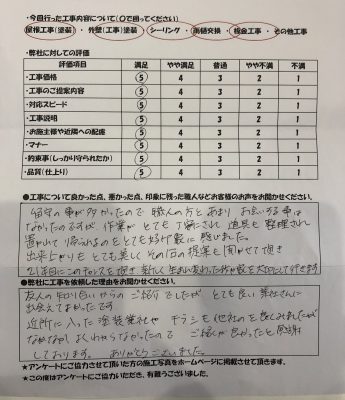 ・今回行った工事内容について(○で囲ってください)
屋根工事(塗装)・外壁(工事)塗装・シーリング・雨樋交換・板金工事・その他工事
・弊社に対しての評価
評価項目 満足 やや満足 普通 やや不満 不満
・工事価格 5 4 3 2 1
・工事のご提案内容 5 4 3 2 1
・対応スピード 5 4 3 2 1
・工事説明 5 4 3 2 1
・お施主様や近隣への配慮 5 4 3 2 1
・マナー 5 4 3 2 1
・約束事(しっかり守られたか) 5 4 3 2 1
・品質(仕上り) 5 4 3 2 1
●工事について良かった点、悪かった点、印象に残った職人などお客様のお声をお聞かせください。
留守の事が多かったので職人の方とあまりお会いする事は
なかったのですが、作業がとても丁寧にされ、道具も整理され
置かれて帰られるのをとても好感に感じました。
出来上がりもとても美しくその他の提案も聞かせて頂き
21年目にこのチャンスを頂き新しく生まれ変わった我が家を大切にして行きます
●弊社に工事を依頼した理由をお聞かせください。
友人の知り合いからのご紹介でしたが、とても良い業社さんに
出会えてよかったです
近所に入った塗装業社やチラシも他社のを良くみれたが
なかなかよくわからなかったので ご紹介が良かったと感謝
しております。 ありがとうございました。
★アンケートにご協力させて頂いた方の施工写真をホームページに掲載させて頂きます。
★この度はアンケートにご協力いただき、有難うございました。